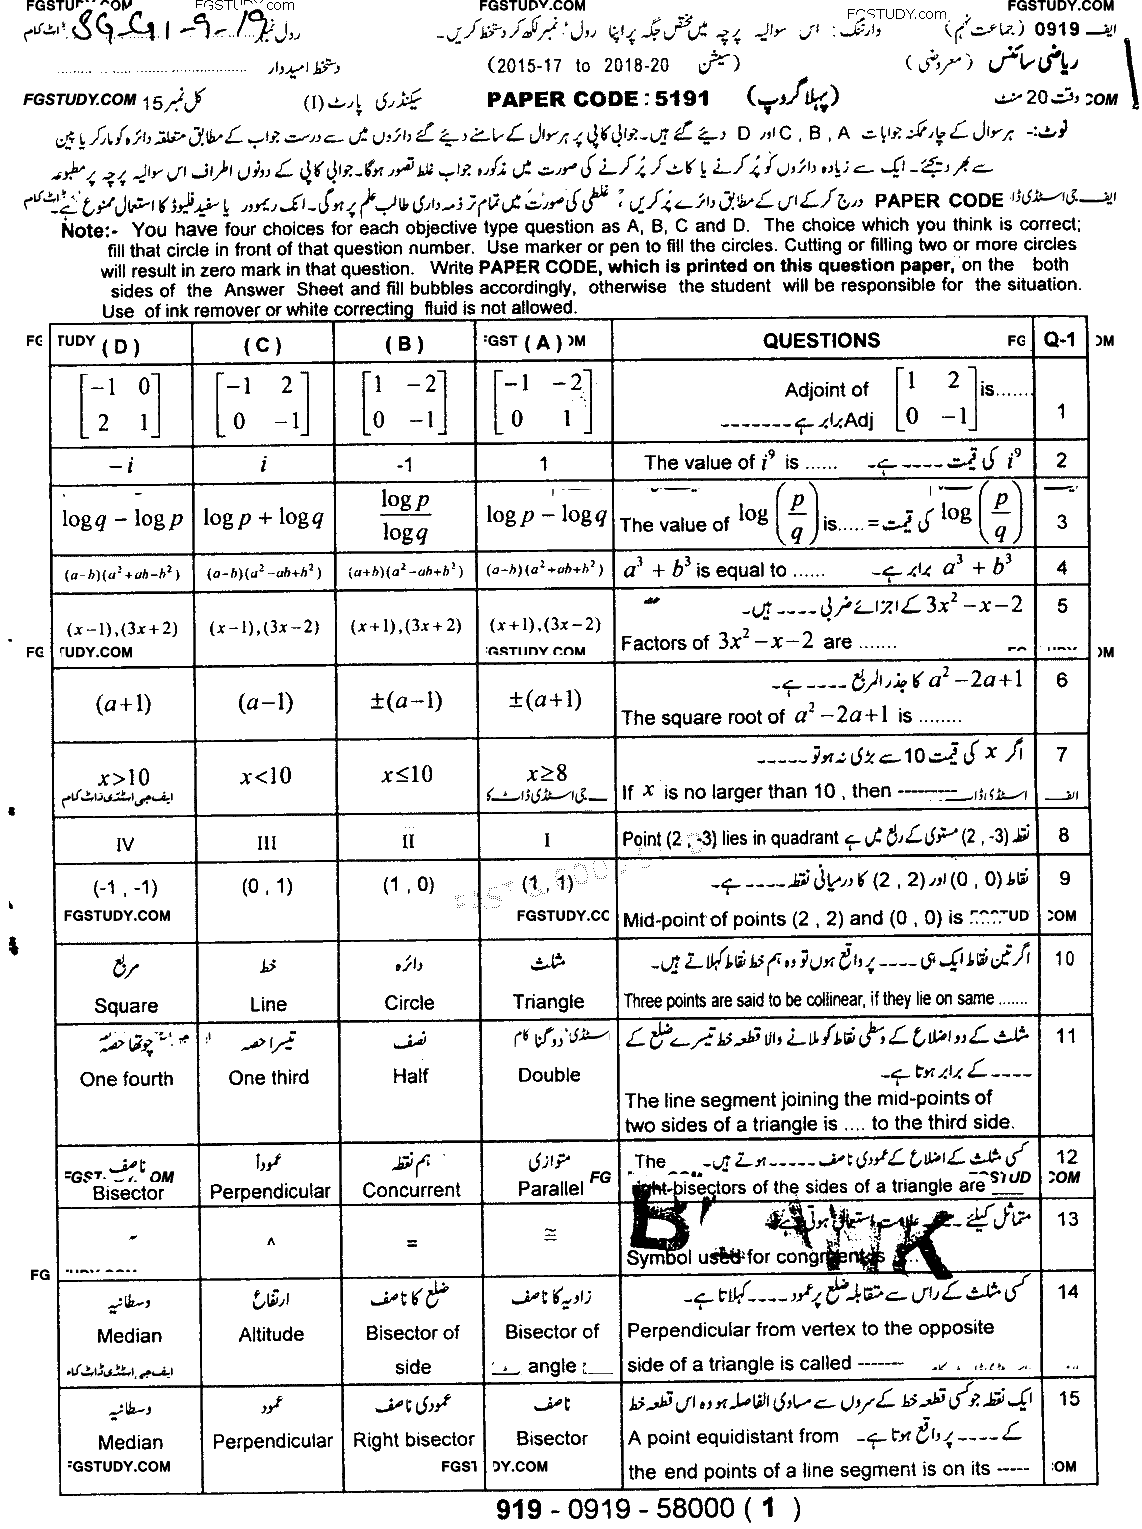 FGSTUDY.COM FGSTUDY.com FGSTUDY.COM FGSTUDY.com FGSTUDY.COM
ایف 0919 (جماعت نہم) وارننگ: اس سوالیہ پرچہ میں مختص جگہ پر اپنا رول نمبر لکھ کر دستخط کریں۔ رول نمبر SGG1-9-19 ڈاٹ کام
ریاضی سائنس (معروضی) (سیشن 2015-17 to 2018-20) دستخط امیدوار
COM وقت 20 منٹ (پہلا گروپ) PAPER CODE : 5191 سیکنڈری پارٹ (I) کل نمبر 15 FGSTUDY.COM
نوٹ:- ہر سوال کے چار ممکنہ جوابات A , B , C اور D دیئے گئے ہیں۔ جوابی کاپی پر ہر سوال کے سامنے دیئے گئے دائروں میں سے درست جواب کے مطابق متعلقہ دائرہ کو مارکر یا پین
سے بھر دیجئے۔ ایک سے زیادہ دائروں کو پُر کرنے یا کاٹ کر پُر کرنے کی صورت میں مذکورہ جواب غلط تصور ہوگا۔ جوابی کاپی کے دونوں اطراف اس سوالیہ پرچہ پر مطبوعہ
ایف جی اسٹڈی ڈا PAPER CODE درج کر کے اس کے مطابق دائرے پُر کریں، غلطی کی صورت میں تمام تر ذمہ داری طالب علم پر ہوگی۔ انک ریموور یا سفید فلیوڈ کا استعمال ممنوع ہے۔ ڈاٹ کام
Note:- You have four choices for each objective type question as A, B, C and D. The choice which you think is correct;
fill that circle in front of that question number. Use marker or pen to fill the circles. Cutting or filling two or more circles
will result in zero mark in that question. Write PAPER CODE, which is printed on this question paper, on the both
sides of the Answer Sheet and fill bubbles accordingly, otherwise the student will be responsible for the situation.
Use of ink remover or white correcting fluid is not allowed.
FG TUDY (D) (C) (B) GST (A) OM QUESTIONS FG Q-1 OM
[-1 0; 2 1] [-1 2; 0 -1] [1 -2; 0 -1] [-1 -2; 0 1] Adjoint of [1 2; 0 -1] is....... 1
Adj برابر ہے -------
-i i -1 1 The value of i⁹ is ...... i⁹ کی قیمت ---- ہے۔ 2
log q - log p log p + log q log p / log q log p - log q The value of log (p/q) is..... = کی قیمت log (p/q) 3
(a-b)(a²+ab-b²) (a-b)(a²-ab+b²) (a+b)(a²-ab+b²) (a-b)(a²+ab+b²) a³ + b³ is equal to ...... a³ + b³ برابر ہے۔ 4
3x² - x - 2 کے اجزائے ضربی ---- ہیں۔ 5
(x-1),(3x+2) (x-1),(3x-2) (x+1),(3x+2) (x+1),(3x-2) Factors of 3x² - x - 2 are .......
FG TUDY.COM GSTUDY.COM OM
a² - 2a + 1 کا جذر المربع ---- ہے۔ 6
(a+1) (a-1) ±(a-1) ±(a+1) The square root of a² - 2a + 1 is ........
اگر x کی قیمت 10 سے بڑی نہ ہو تو ----- 7
x>10 x<10 x≤10 x≥8 If x is no larger than 10 , then --------
ایف جی اسٹڈی ڈاٹ کام
IV III II I Point (2 , -3) lies in quadrant نقطہ (2 , -3) مستوی کے ربع میں ہے 8
نقاط (0 , 0) اور (2 , 2) کا درمیانی نقطہ ---- ہے۔ 9
(-1 , -1) (0 , 1) (1 , 0) (1 , 1) Mid-point of points (2 , 2) and (0 , 0) is
FGSTUDY.COM FGSTUDY.CC TUD COM
مربع خط دائرہ مثلث اگر تین نقاط ایک ہی ---- پر واقع ہوں تو وہ ہم خط نقاط کہلاتے ہیں۔ 10
Square Line Circle Triangle Three points are said to be collinear, if they lie on same .......
چوتھا حصہ تیسرا حصہ نصف دوگنا مثلث کے دو اضلاع کے وسطی نقاط کو ملانے والا قطعہ خط تیسرے ضلع کے 11
---- کے برابر ہوتا ہے۔
One fourth One third Half Double The line segment joining the mid-points of
two sides of a triangle is .... to the third side.
ناصف عموداً ہم نقطہ متوازی کسی مثلث کے اضلاع کے عمودی ناصف ----- ہوتے ہیں۔ The 12
Bisector Perpendicular Concurrent Parallel FG right-bisectors of the sides of a triangle are STUD COM
متماثل کیلئے علامت استعمال ہوتی ہے 13
~ ^ = ≅ Symbol used for congruent is
FG
وسطانیہ ارتفاع ضلع کا ناصف زاویہ کا ناصف کسی مثلث کے راس سے متقابلہ ضلع پر عمود ---- کہلاتا ہے۔ 14
Median Altitude Bisector of side Bisector of angle Perpendicular from vertex to the opposite
side of a triangle is called ------
ایف جی اسٹڈی ڈاٹ کام
وسطانیہ عمود عمودی ناصف ناصف ایک نقطہ جو کسی قطعہ خط کے سروں سے مساوی الفاصلہ ہو وہ اس قطعہ خط 15
Median Perpendicular Right bisector Bisector A point equidistant from کے ---- پر واقع ہوتا ہے۔
FGSTUDY.COM FGST DY.COM the end points of a line segment is on its ----- OM
919 - 0919 - 58000 ( 1 )